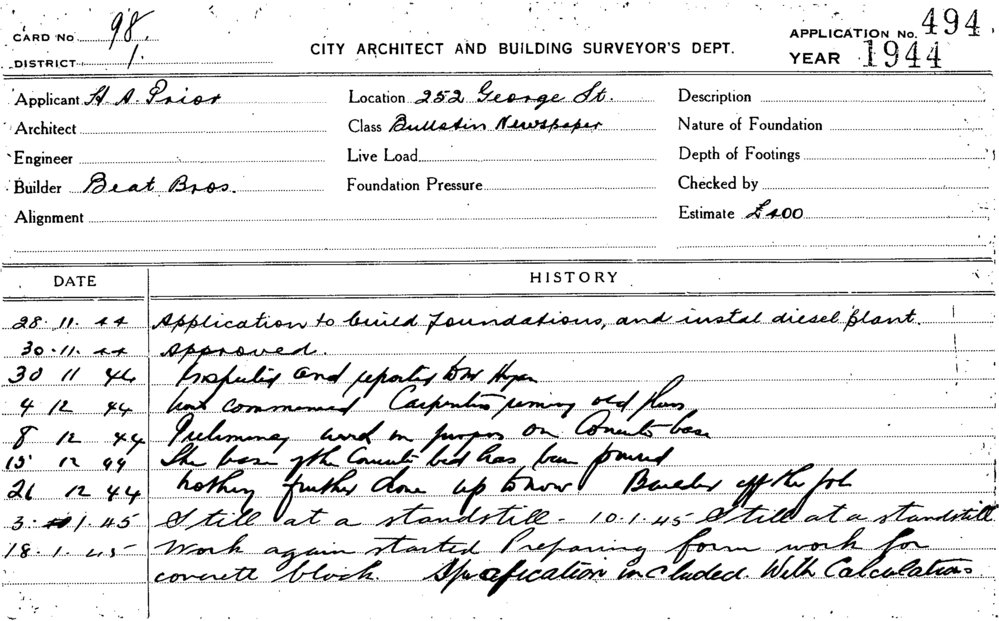 CARD No 98.
DISTRICT 1.
CITY ARCHITECT AND BUILDING SURVEYOR'S DEPT.
APPLICATION No. 494
YEAR 1944
Applicant H. A. Prior
Location 252 George St.
Description
Architect
Class Bulletin Newspaper
Nature of Foundation
Engineer
Live Load
Depth of Footings
Builder Beat Bros.
Foundation Pressure
Checked by
Alignment
Estimate £400
DATE HISTORY
28.11.44 Application to build foundations, and instal diesel plant.
30.11.44 Approved.
30 11 44 Inspected and reported to Mr
4 12 44 Work commenced Carpenters old
8 12 44 Preliminary work in progress on Concrete base
15 12 44 The base of the Concrete bed has been poured
21 12 44 Nothing further done up to now Builder off the job
3. 1.45 Still at a standstill - 10.1.45 Still at a standstill
18.1.45 Work again started Preparing form work for
concrete block. Specification included. With Calculations.